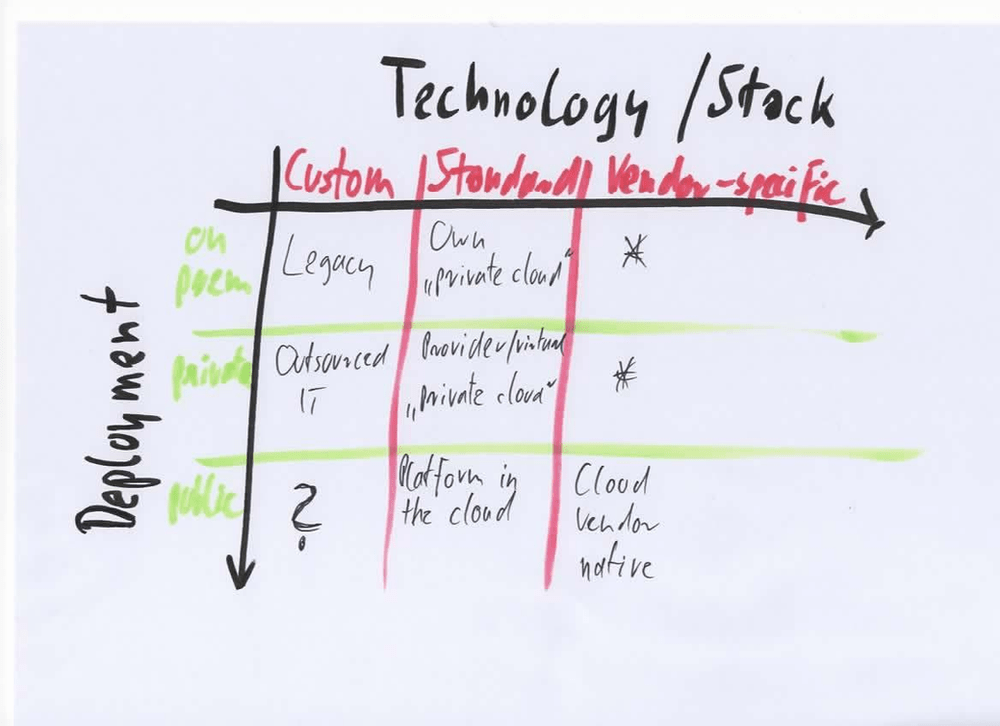 Technology / Stack
Custom Standard Vendor-specific
Deployment
on prem
Legacy
Own
„private cloud"
*
private
Outsourced
IT
Provider/virtual
„private cloud"
*
public
?
Platform in
the cloud
Cloud
vendor
native